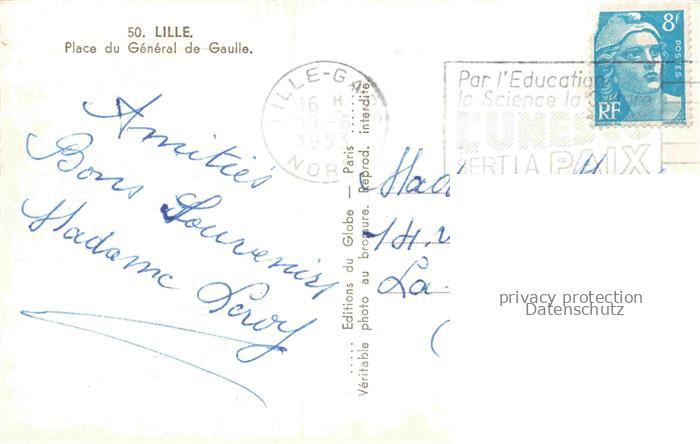 50. LILLE.
Place du Général de Gaulle.
Amitiés
Bons Souvenirs
Madame Leroy
Editions du Globe — Paris
Véritable photo au bromure. Reprod. interdite.
LILLE-GARE
16 H
19-6
1953
NORD
Par l'Education
la Science la Culture
L'UNESCO
SERT LA PAIX
8F
POSTES
RF
14,
La
privacy protection
Datenschutz